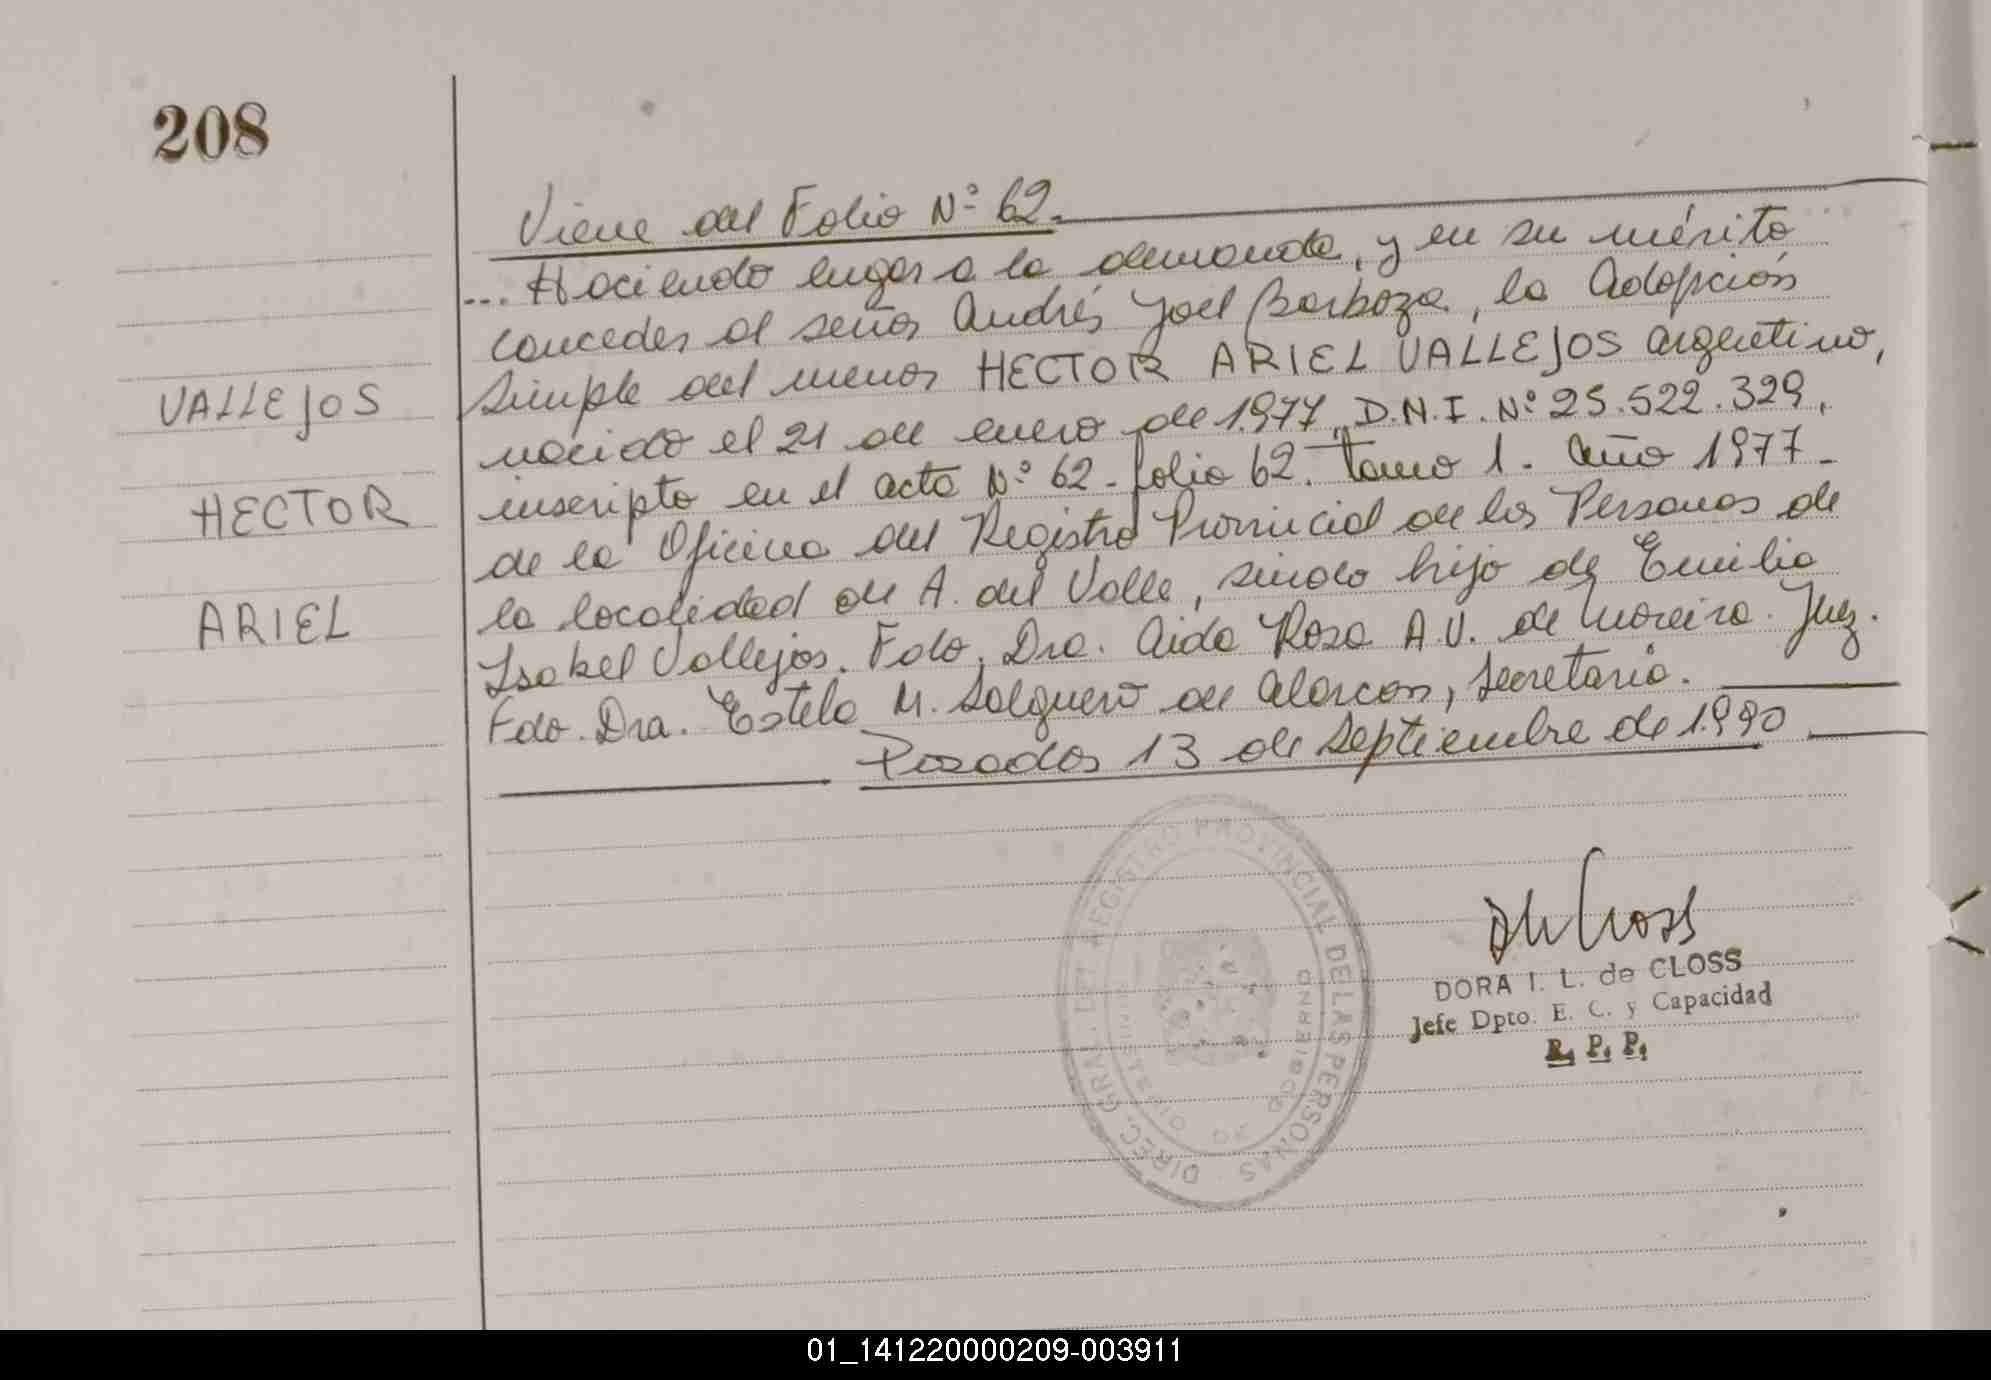 208
Viene del Folio Nº 62.
... Haciendo lugar a la demanda, y en su mérito
conceder al señor Andrés Joel Barboza, la Adopción
simple del menor HECTOR ARIEL VALLEJOS argentino,
nacido el 21 de enero de 1.977, D.N.I. Nº 25.522.329,
inscripto en el acta Nº 62 - folio 62. Tomo 1. Año 1977 -
de la Oficina del Registro Provincial de las Personas de
la localidad de A. del Valle, siendo hijo de Emilia
Isabel Vallejos. Fdo. Dra. Aida Rosa A.V. de Moreira. Juez.
Fdo. Dra. Estela M. Salguero de Alarcon, Secretaria.
Posadas 13 de septiembre de 1.990
VALLEJOS
HECTOR
ARIEL
DIREC. GRAL. DEL REGISTRO PROVINCIAL DE LAS PERSONAS
MINISTERIO DE GOBIERNO
DORA I. L. de CLOSS
Jefe Dpto. E. C. y Capacidad
R. P. P.
01_141220000209-003911